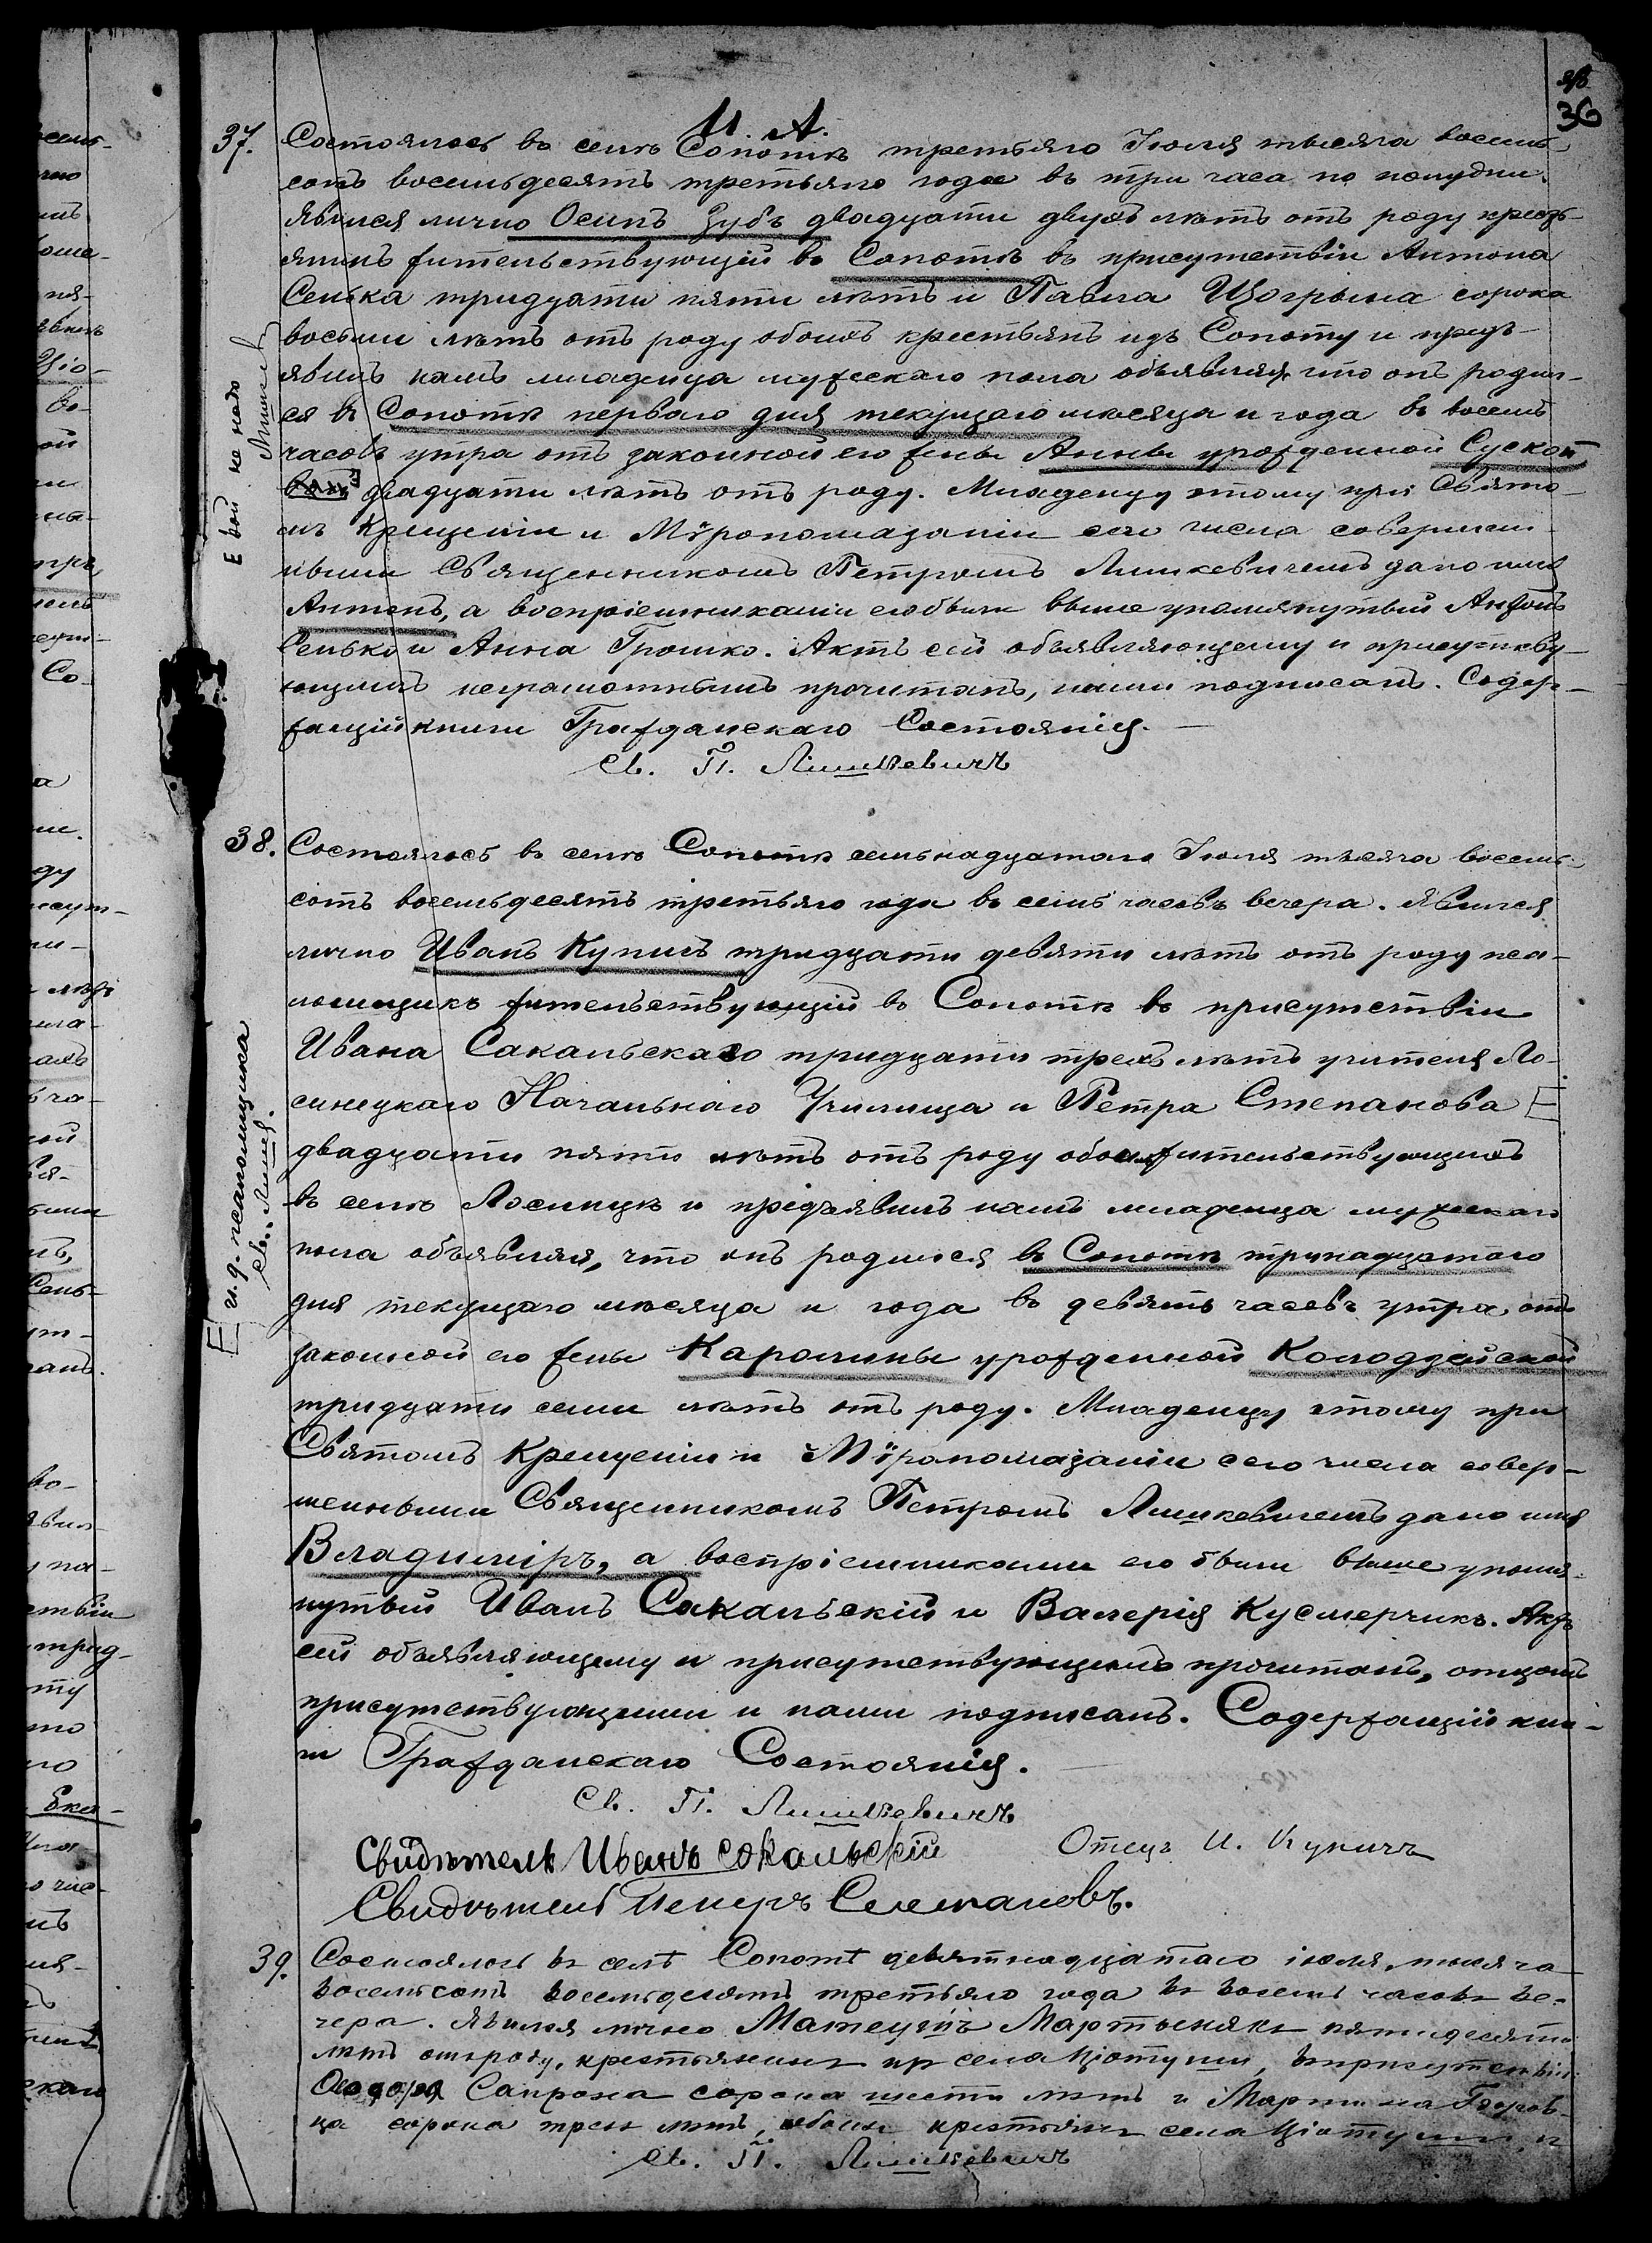 36
И. А.
37. Состоялось въ селѣ Сопотѣ третьяго Іюля тысяча восемь-
сотъ восемьдесятъ третьяго года въ три часа по полудни.
Явился лично Осипъ Зубъ двадцати двухъ лѣтъ отъ роду кресть-
янинъ жительствующій въ Сопотѣ въ присутствіи Антона
Сенька тридцати пяти лѣтъ и Павла сорока
восьми лѣтъ отъ роду обоихъ крестьянъ изъ Сопоту и предъ-
явилъ намъ младенца мужескаго пола объявляя, что онъ родил-
ся въ Сопотѣ перваго дня текущаго мѣсяца и года въ восемь
часовъ утра отъ законной его жены Анны урожденной Сускои
двадцати лѣтъ отъ роду. Младенцу этому при Свято-
мъ Крещеніи и Мѵропомазаніи сего числа совершен-
ныхъ Священникомъ Петромъ Лишкевичемъ дано имя
Антонъ, а воспріемниками его были выше упомянутый Антонъ
Сенько и Анна Грошко. Актъ сей объявляющему и присутству-
ющимъ неграмотнымъ прочитанъ, нами подписанъ. Содер-
жащій книги Гражданскаго Состоянія.
Св. П. Лишкевичъ
Е вой не надо
38. Состоялось въ селѣ Сопотѣ семьнадцатаго Іюля тысяча восемь-
сотъ восемьдесятъ третьяго года въ семь часовъ вечера. Явился
лично Иванъ Купичъ тридцати девяти лѣтъ отъ роду пса-
ломщикъ жительствующій въ Сопотѣ въ присутствіи
Ивана Сакальскаго тридцати трехъ лѣтъ учителя Ло-
синецкаго Начальнаго Училища и Петра Степанова
двадцати пяти лѣтъ отъ роду обоихъ жительствующихъ
въ селѣ Лосинцѣ и предъявилъ намъ младенца мужескаго
пола объявляя, что онъ родился въ Сопотѣ тринадцатаго
дня текущаго мѣсяца и года въ девять часовъ утра, отъ
законной его жены Каролины урожденной Колодзейской
тридцати семи лѣтъ отъ роду. Младенцу этому при
Святомъ Крещеніи и Мѵропомазаніи сего числа совер-
шенныхъ Священникомъ Петромъ Лишкевичемъ дано имя
Владиміръ, а воспріемниками его были выше упомя-
нутый Иванъ Сакальскій и Валерія Кусмерчикъ. Актъ
сей объявляющему и присутствующимъ прочитанъ, отцомъ
присутствующими и нами подписанъ. Содержащій кни-
ги Гражданскаго Состоянія.
Св. П. Лишкевичъ
Свидѣтель Иванъ Сокальскій
Отецъ И. Купичъ
Свидѣтель Петръ Степановъ.
и. д. псаломщика
Св. Лишк.
39. Состоялось въ селѣ Сопотѣ девятнадцатаго іюля, тысяча
восемьсотъ восемьдесятъ третьяго года въ восемь часовъ ве-
чера. Явился лично Матеушъ Мартынякъ пятидесяти
лѣтъ отъ роду, крестьянинъ изъ села Цютуши, въ присутствіи
Ѳеодора Сапрона сорока шести лѣтъ и Мартина
сорока трехъ лѣтъ, обоихъ крестьянъ села Цютуши, и
Св. П. Лишкевичъ